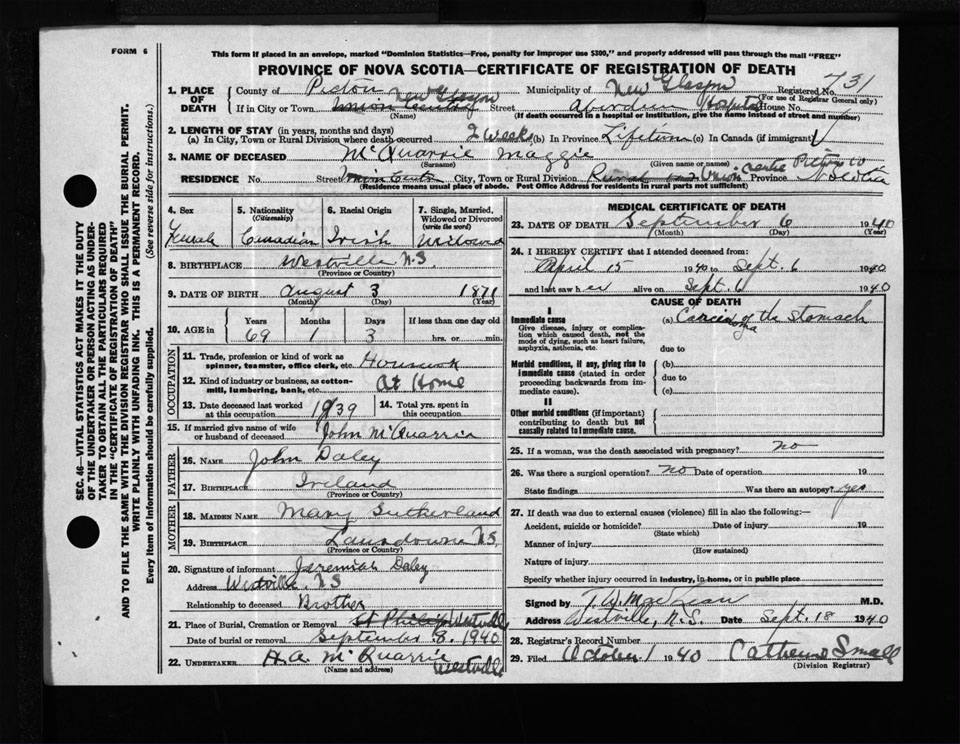 FORM 6
This form if placed in an envelope, marked "Dominion Statistics—Free, penalty for improper use $300," and properly addressed will pass through the mail "FREE"
PROVINCE OF NOVA SCOTIA—CERTIFICATE OF REGISTRATION OF DEATH
SEC. 46—VITAL STATISTICS ACT MAKES IT THE DUTY
OF THE UNDERTAKER OR PERSON ACTING AS UNDER-
TAKER TO OBTAIN ALL THE PARTICULARS REQUIRED
IN THE "CERTIFICATE OF REGISTRATION OF DEATH"
AND TO FILE THE SAME WITH THE DIVISION REGISTRAR WHO SHALL ISSUE THE BURIAL PERMIT.
WRITE PLAINLY WITH UNFADING INK. THIS IS A PERMANENT RECORD.
Every item of information should be carefully supplied. (See reverse side for instructions.)
1. PLACE OF DEATH County of Pictou Municipality of New Glasgow Registered No. 731
(For use of Registrar General only)
If in City or Town New Glasgow Street Aberdeen Hospital House No.
(Name) (If death occurred in a hospital or institution, give its name instead of street and number)
2. LENGTH OF STAY (in years, months and days)
(a) In City, Town or Rural Division where death occurred 2 weeks (b) In Province Lifetime (c) In Canada (if immigrant)
3. NAME OF DECEASED McQuarrie Maggie
(Surname) (Given name or names)
RESIDENCE No. Street City, Town or Rural Division Rural Union Centre Pictou Co Province N Scotia
(Residence means usual place of abode. Post Office Address for residents in rural parts not sufficient)
4. Sex Female
5. Nationality (Citizenship) Canadian
6. Racial Origin Irish
7. Single, Married, Widowed or Divorced (write the word) Widowed
8. BIRTHPLACE Westville N.S.
(Province or Country)
9. DATE OF BIRTH August 3 1871
(Month) (Day) (Year)
10. AGE in Years Months Days If less than one day old
69 1 3 hrs. or min.
OCCUPATION
11. Trade, profession or kind of work as spinner, teamster, office clerk, etc. Housework
12. Kind of industry or business, as cotton-mill, lumbering, bank, etc. At Home
13. Date deceased last worked at this occupation 1939
14. Total yrs. spent in this occupation
15. If married give name of wife or husband of deceased John McQuarrie
FATHER
16. NAME John Daley
17. BIRTHPLACE Ireland
(Province or Country)
MOTHER
18. MAIDEN NAME Mary Sutherland
19. BIRTHPLACE Lansdowne N.S.
(Province or Country)
20. Signature of informant Jeremiah Daley
Address Westville N.S
Relationship to deceased Brother
21. Place of Burial, Cremation or Removal St Philips Westville
Date of burial or removal September 8. 1940
22. UNDERTAKER H.A. McQuarrie Westville
(Name and address)
MEDICAL CERTIFICATE OF DEATH
23. DATE OF DEATH September 6 1940
(Month) (Day) (Year)
24. I HEREBY CERTIFY that I attended deceased from:
April 15 1940 to Sept. 6 1940
and last saw her alive on Sept. 6 1940
CAUSE OF DEATH
I
Immediate cause (a) Carcinoma of the Stomach
Give disease, injury or complication which caused death, not the mode of dying, such as heart failure, asphyxia, asthenia, etc. due to
Morbid conditions, if any, giving rise to immediate cause (stated in order proceeding backwards from immediate cause). (b)
due to
(c)
II
Other morbid conditions (if important) contributing to death but not causally related to immediate cause.
25. If a woman, was the death associated with pregnancy? no
26. Was there a surgical operation? no Date of operation 19
State findings Was there an autopsy? yes
27. If death was due to external causes (violence) fill in also the following:—
Accident, suicide or homicide? Date of injury 19
(State which)
Manner of injury
(How sustained)
Nature of injury
Specify whether injury occurred in industry, in home, or in public place
Signed by T.W. MacLean M.D.
Address Westville, N.S. Date Sept. 18 1940
28. Registrar's Record Number
29. Filed October 1 1940 Small
(Division Registrar)